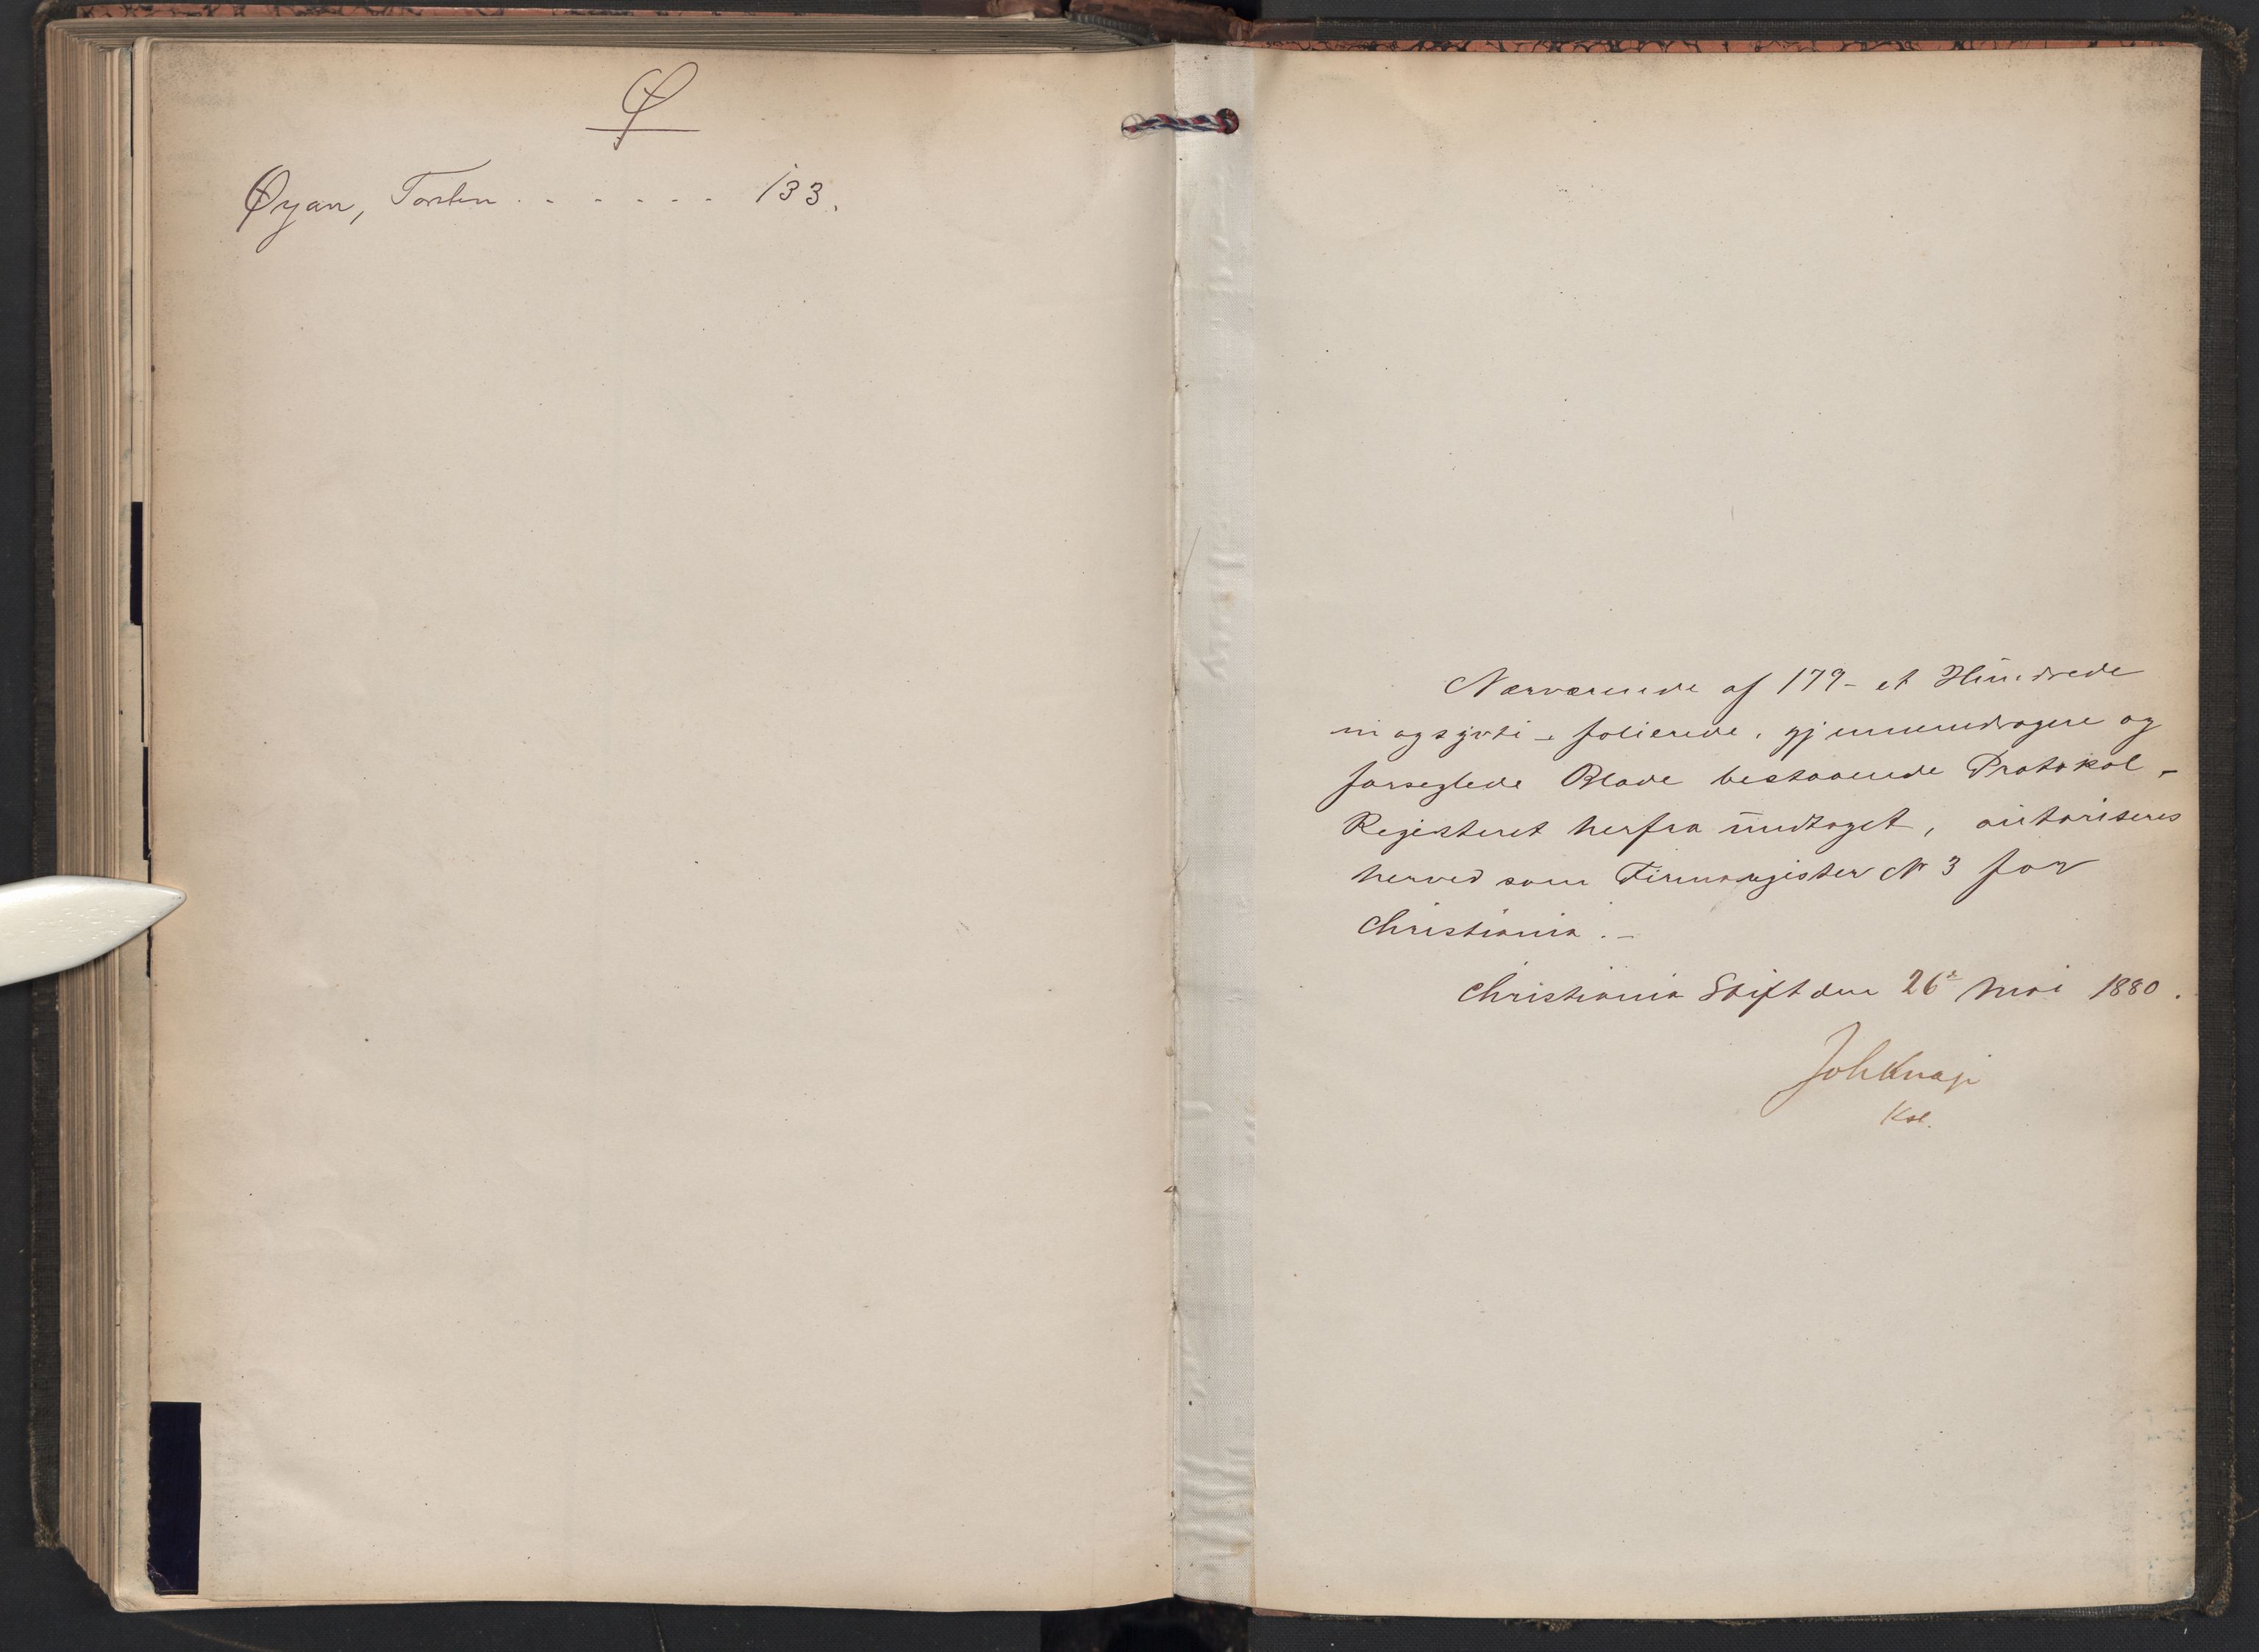 Ø
Øyan, Torsten . . . . . . 133.
Nærværende af 179 - et Hundrede
ni og sytti - folierede, gjennemdragne og
forseglede Blade bestaaende Protokol -
Registeret herfra undtaget, autoriseres
herved som Firmaregister No 3 for
Christiania. -
Christiania Stift den 26de Mai 1880.
Joh Knap
Kst.